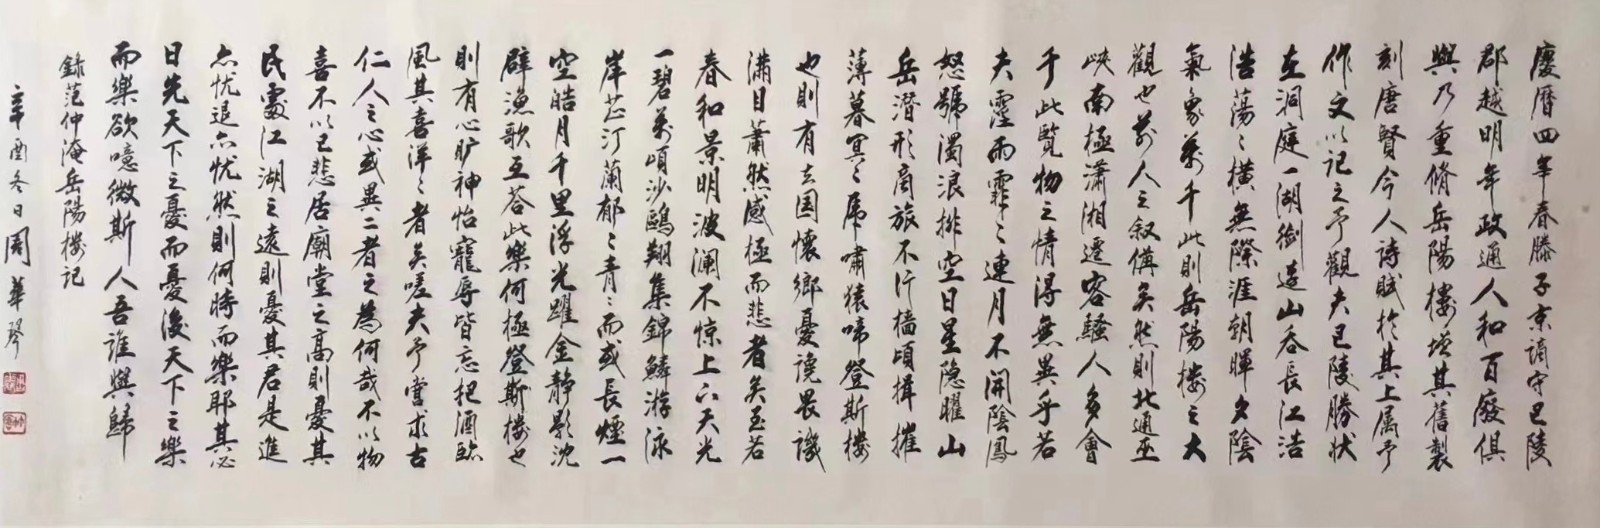 慶曆四年春滕子京谪守巴陵
郡越明年政通人和百廢俱
興乃重脩岳陽楼增其舊製
刻唐賢今人詩賦於其上属予
作文以记之予觀夫巴陵勝状
在洞庭一湖銜遠山吞長江浩
浩蕩〻橫無際涯朝暉夕陰
氣象萬千此則岳陽楼之大
觀也前人之叙備矣然則北通巫
峽南極瀟湘遷客騷人多會
于此覽物之情得無異乎若
夫霪雨霏〻連月不開陰風
怒號濁浪排空日星隐曜山
岳潛形商旅不行檣傾楫摧
薄暮冥〻虎嘯猿啼登斯楼
也則有去国懷鄉憂讒畏譏
滿目蕭然感極而悲者矣至若
春和景明波澜不惊上下天光
一碧萬頃沙鷗翔集錦鱗游泳
岸芷汀蘭郁〻青〻而或長煙一
空皓月千里浮光躍金静影沈
璧漁歌互荅此樂何極登斯楼也
則有心旷神怡寵辱皆忘把酒臨
風其喜洋〻者矣嗟夫予嘗求古
仁人之心或異二者之為何哉不以物
喜不以己悲居廟堂之高則憂其
民處江湖之遠則憂其君是進
亦忧退亦忧然則何時而樂耶其必
曰先天下之憂而憂後天下之樂
而樂歟噫微斯人吾誰與歸
錄范仲淹岳陽楼记
辛酉冬日周華琴